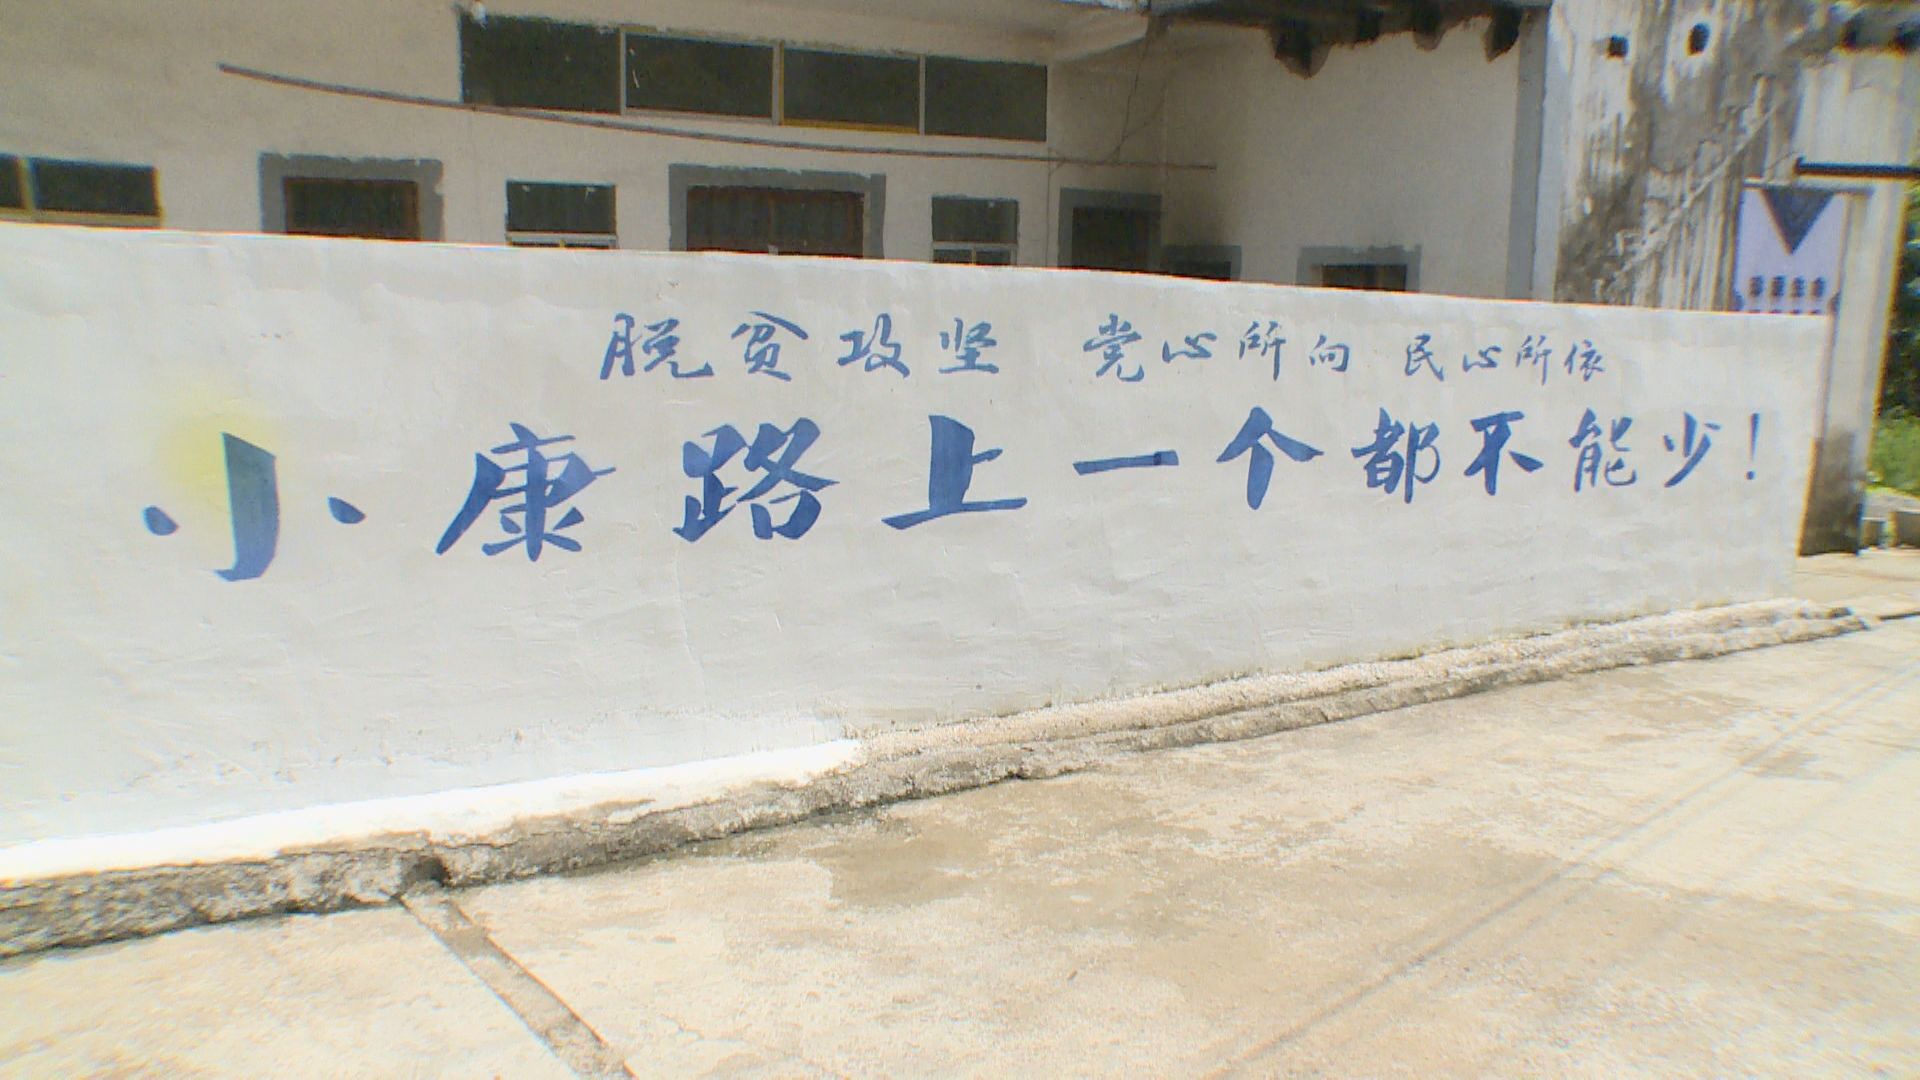 脱贫攻坚 党心所向 民心所依
小康路上一个都不能少！